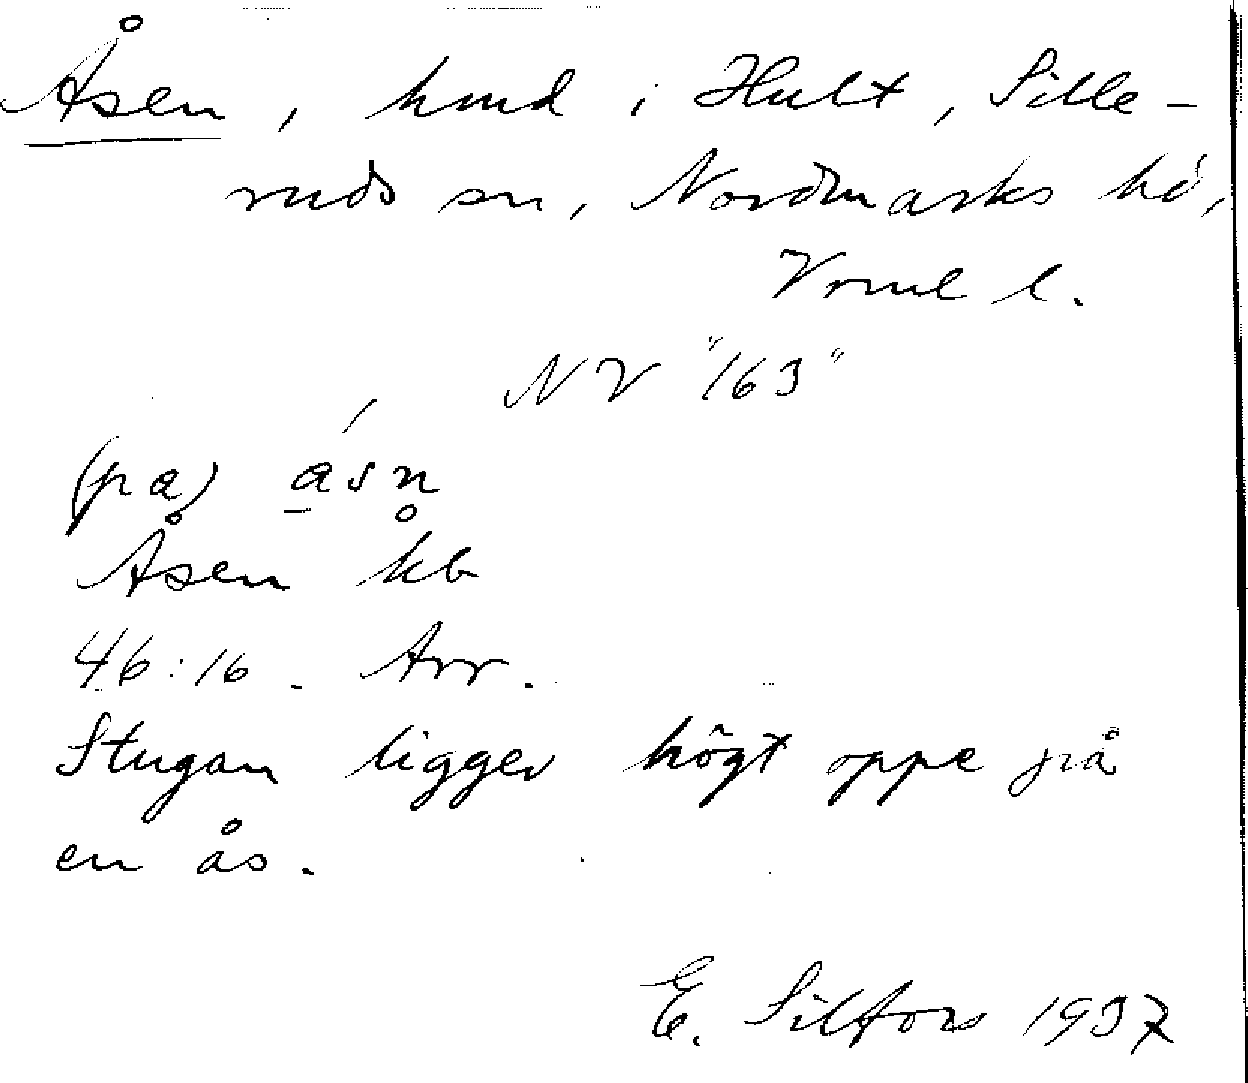 Åsen, hmd i Hult, Sille-
ruds sn, Nordmarks hd,
Vrml l.
NV "163"
(pa) ásn
Åsen kb
46:16. Arr.
Stugan ligger högt oppe på
en ås.
E. Silfors 1937